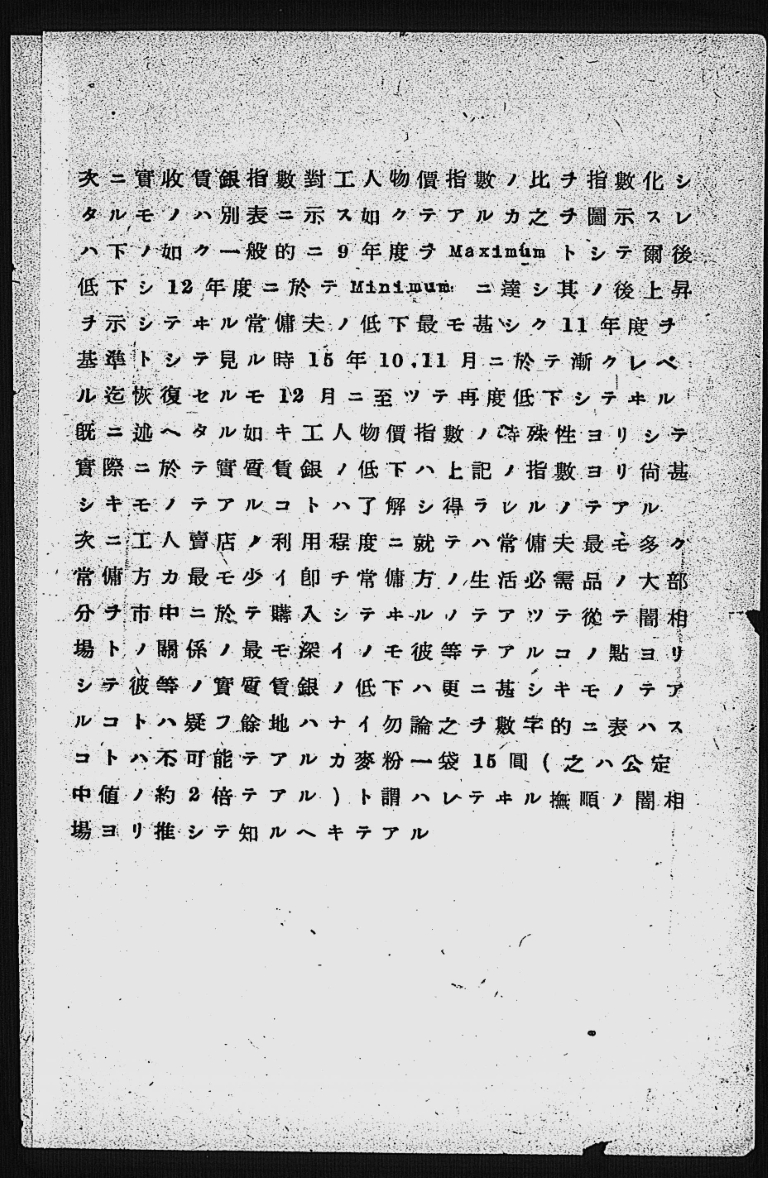 次ニ實收賃銀指數對工人物價指數ノ比ヲ指數化シ
タルモノハ別表ニ示ス如クテアルカ之ヲ圖示スレ
ハ下ノ如ク一般的ニ9年度ヲMaximumトシテ爾後
低下シ12年度ニ於テMinimumニ達シ其ノ後上昇
ヲ示シテヰル常傭夫ノ低下最モ甚シク11年度ヲ
基準トシテ見ル時15年10.11月ニ於テ漸クレベ
ル迄恢復セルモ12月ニ至ツテ再度低下シテヰル
既ニ述ヘタル如キ工人物價指數ノ特殊性ヨリシテ
實際ニ於テ實質賃銀ノ低下ハ上記ノ指數ヨリ尙甚
シキモノテアルコトハ了解シ得ラレルノテアル
次ニ工人賣店ノ利用程度ニ就テハ常傭夫最モ多ク
常傭方カ最モ少イ卽チ常傭方ノ生活必需品ノ大部
分ヲ市中ニ於テ購入シテヰルノテアツテ從テ闇相
場トノ關係ノ最モ深イノモ彼等テアルコノ點ヨリ
シテ彼等ノ實質賃銀ノ低下ハ更ニ甚シキモノテア
ルコトハ疑フ餘地ハナイ勿論之ヲ數字的ニ表ハス
コトハ不可能テアルカ麥粉一袋15圓(之ハ公定
中値ノ約2倍テアル)ト謂ハレテヰル撫順ノ闇相
場ヨリ推シテ知ルヘキテアル